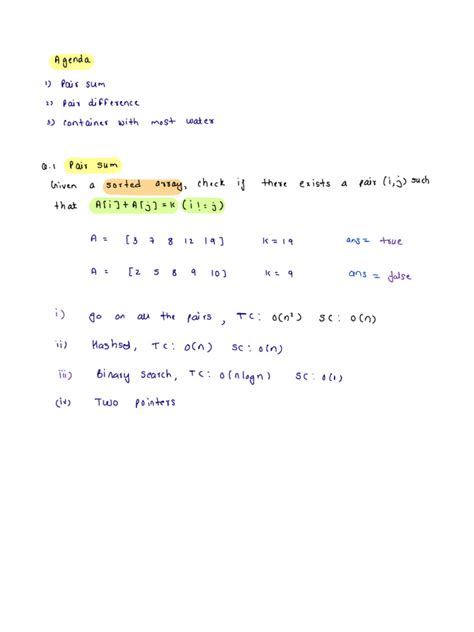 Agenda
1) Pair sum
2) Pair difference
3) Container with most water
Q.1 Pair sum
Given a sorted array, check if there exists a pair (i,j) such
that A[i]+A[j]=k (i!=j)
A = [3 7 8 12 19] K=19 ans= true
A = [2 5 8 9 10] K=9 ans = false
i) go on all the pairs, TC: O(n²) SC: O(n)
ii) Hashset, TC: O(n) SC: O(n)
iii) Binary search, TC: O(nlogn) SC: O(1)
(iv) Two pointers